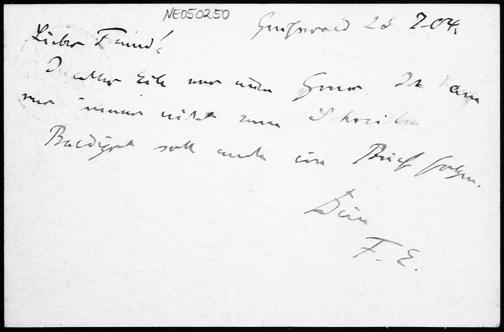 NE050250
Greifswald 28 7.04.
Lieber Freund!
In aller Eile nur einen Gruss. Ich kam
nur immer nicht zum Schreiben
Baldigst soll mehr ein Brief folgen.
Dein
F. E.